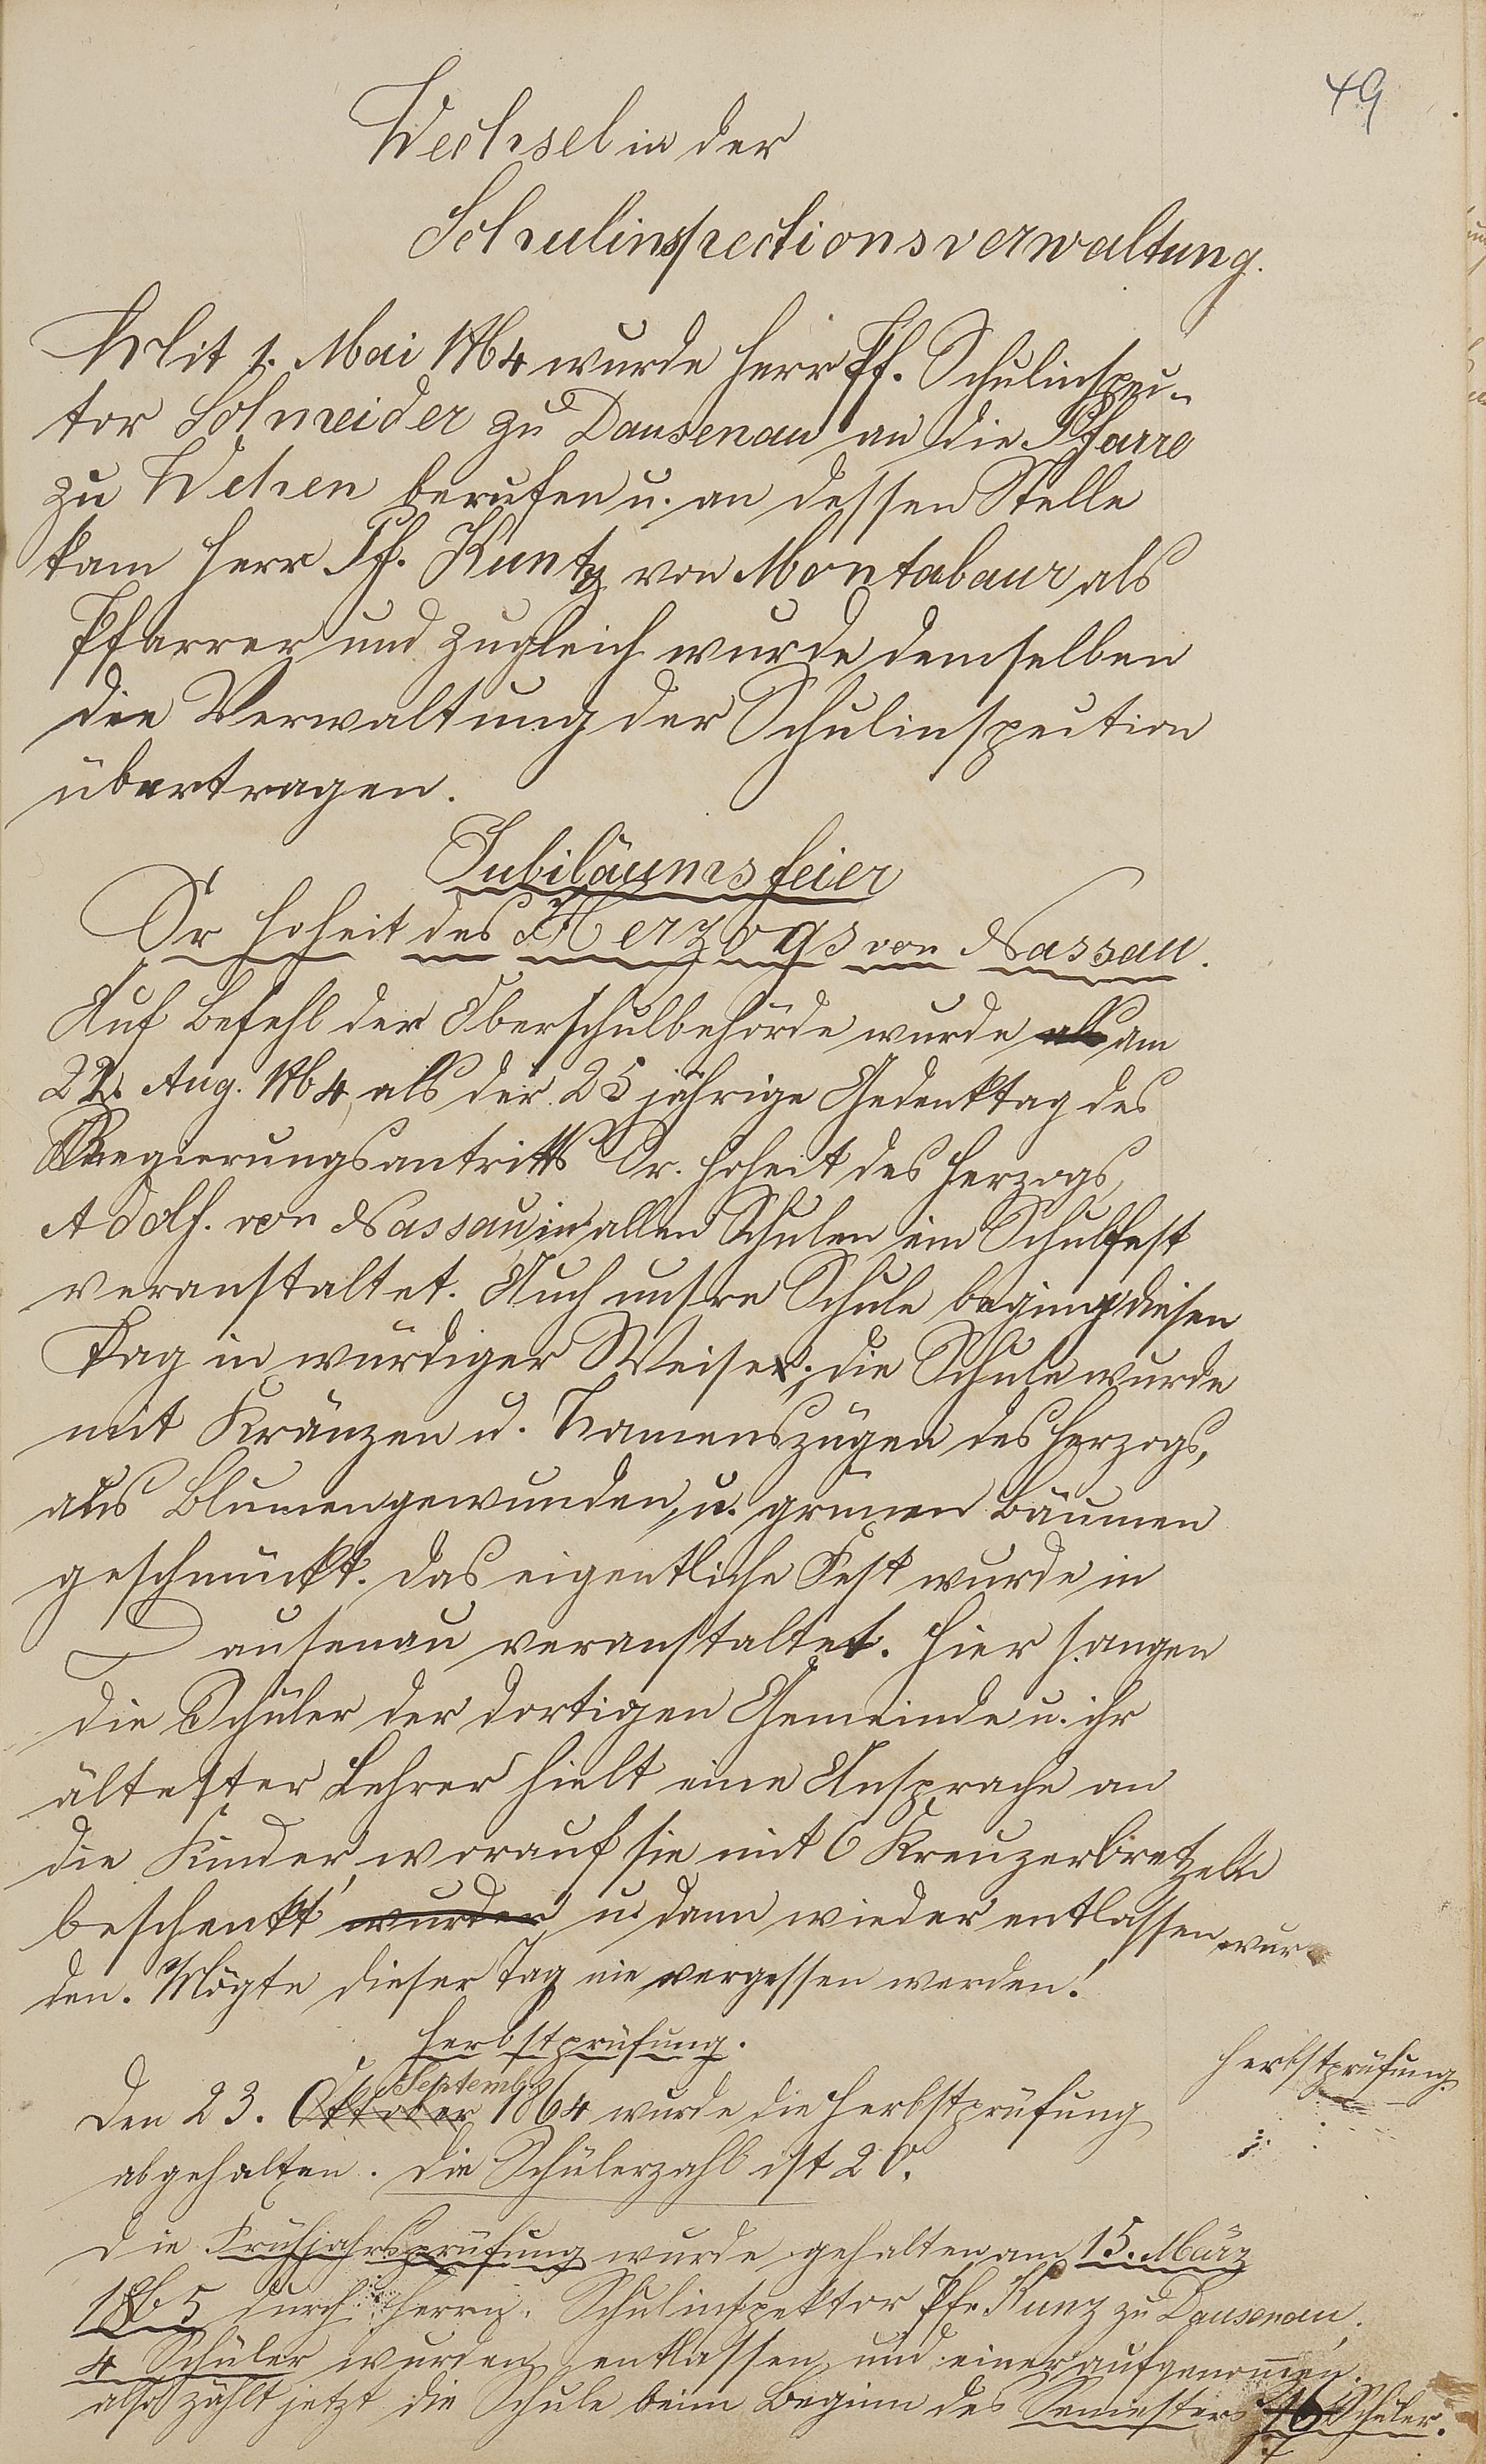 49
Wechsel in der
Schulinspectionsverwaltung.
Mit 1. Mai 1864 wurde Herr Pf. Schulinspec-
tor Schneider zu Dausenau an die Pfarre
zu Wehen berufen u. an dessen Stelle
kam Herr Pf. Kuntz von Montabaur als
Pfarrer und zugleich wurde demselben
die Verwaltung der Schulinspection
übertragen.
Jubiläumsfeier
Sr Hoheit des Herzogs von Nassau.
Auf Befehl der Oberschulbehörde wurde als am
22. Aug. 1864, als der 25 jährige Gedenktag des
Regierungsantritts Sr. Hoheit des Herzogs
Adolf. von Nassau in allen Schulen ein Schulfest
veranstaltet. Auch unsre Schule beging diesen
Tag in würdiger Weise; die Schule wurde
mit Kränzen u. Namenszügen des Herzogs,
aus Blumen gewunden, u. grünen Bäumen
geschmückt. Das eigentliche Fest wurde in
Dausenau veranstaltet. Hier sangen
die Schüler der dortigen Gemeinde u. ihr
ältester Lehrer hielt eine Ansprache an
die Kinder, worauf sie mit 6 Kreuzerbretzeln
beschenkt wurden u. dann wieder entlassen wur-
den. Mögte dieser Tag nie vergessen werden!
Herbstprüfung.
Herbstprüfung
September
Den 23. Oktober 1864 wurde die Herbstprüfung
abgehalten. Die Schülerzahl ist 20.
Die Frühjahrsprüfung wurde gehalten am 15. März
1865 durch Herrn Schulinspektor Pfr. Kunz zu Dausenau.
4 Schüler wurden entlassen und einer aufgenommen,
also zählt jetzt die Schule beim Beginn des Semesters Schüler.